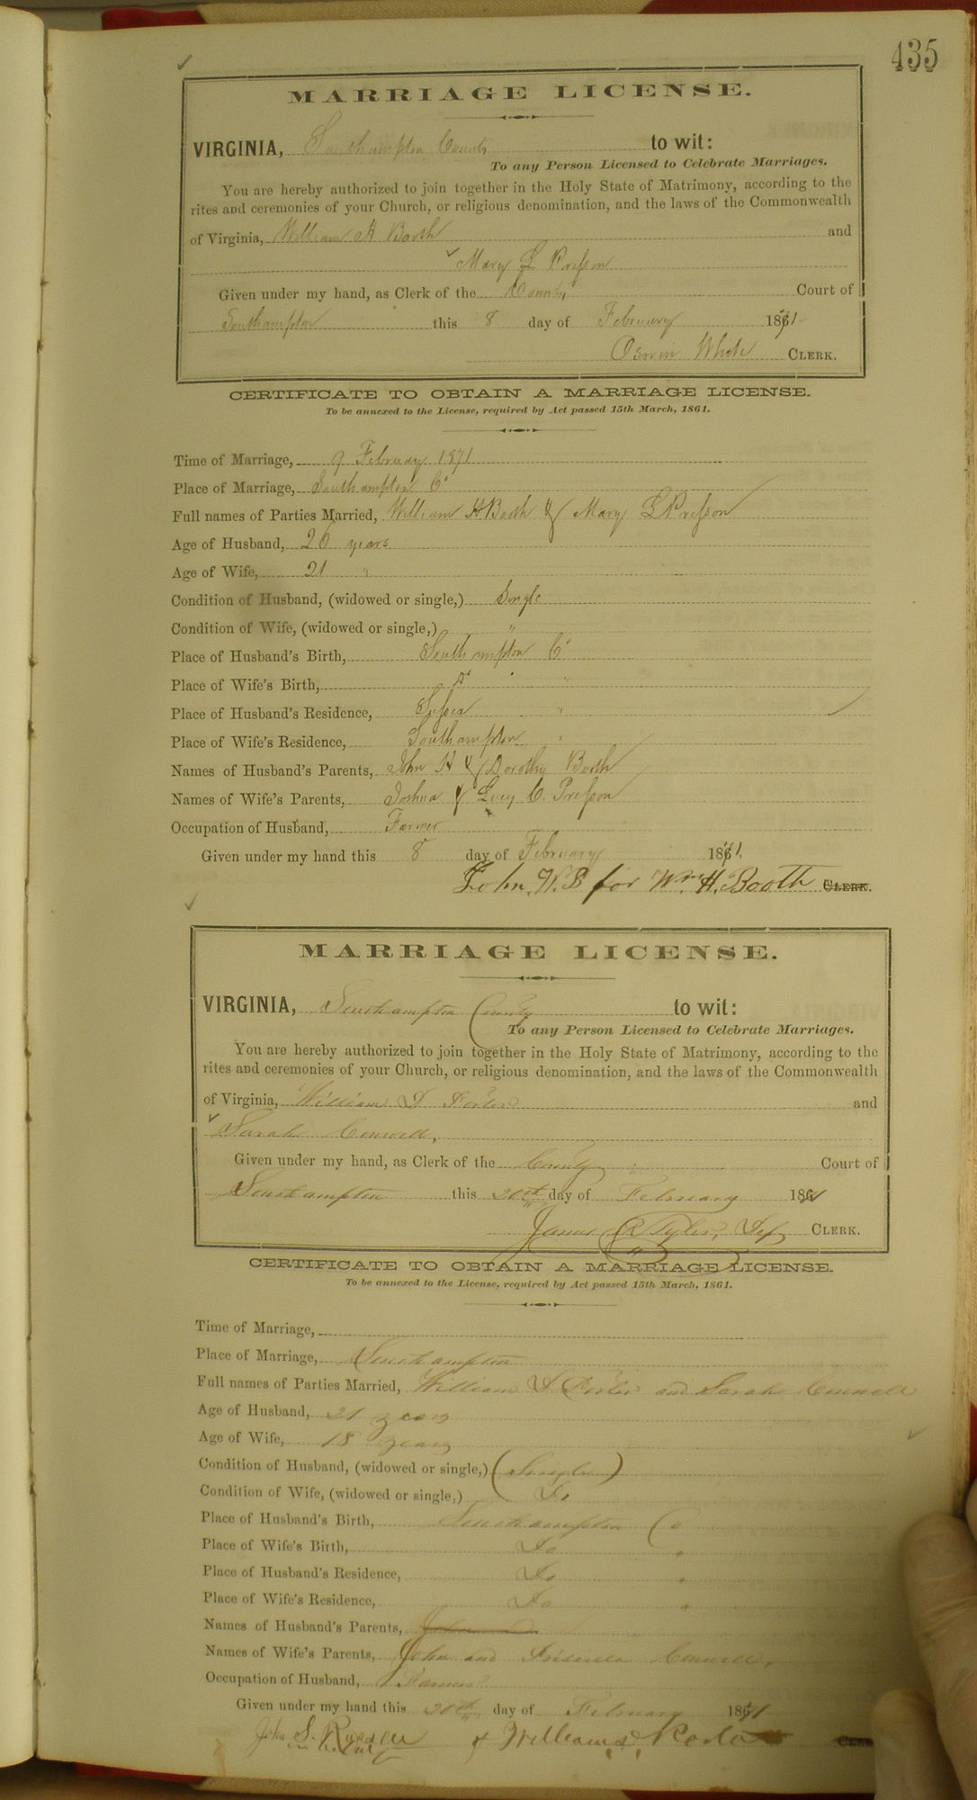 435
MARRIAGE LICENSE.
VIRGINIA, Southampton County to wit:
To any Person Licensed to Celebrate Marriages.
You are hereby authorized to join together in the Holy State of Matrimony, according to the
rites and ceremonies of your Church, or religious denomination, and the laws of the Commonwealth
of Virginia, William H Booth and
Mary L Presson
Given under my hand, as Clerk of the County Court of
Southampton this 8 day of February 1871
White CLERK.
CERTIFICATE TO OBTAIN A MARRIAGE LICENSE.
To be annexed to the License, required by Act passed 15th March, 1861.
Time of Marriage, 9 February 1871
Place of Marriage, Southampton Co
Full names of Parties Married, William H Booth & Mary L Presson
Age of Husband, 26 years
Age of Wife, 21 "
Condition of Husband, (widowed or single,) Single
Condition of Wife, (widowed or single,) "
Place of Husband's Birth, Southampton Co
Place of Wife's Birth, Do "
Place of Husband's Residence, Sussex "
Place of Wife's Residence, Southampton "
Names of Husband's Parents, John H & Dorothy Booth
Names of Wife's Parents, Joshua & Lucy C. Presson
Occupation of Husband, Farmer
Given under my hand this 8 day of February 1871
John. W. B for Wm. H. Booth CLERK.
MARRIAGE LICENSE.
VIRGINIA, Southampton County to wit:
To any Person Licensed to Celebrate Marriages.
You are hereby authorized to join together in the Holy State of Matrimony, according to the
rites and ceremonies of your Church, or religious denomination, and the laws of the Commonwealth
of Virginia, William and
Sarah
Given under my hand, as Clerk of the County Court of
Southampton this 20th day of February 1871
James R Tyler, Dep CLERK.
CERTIFICATE TO OBTAIN A MARRIAGE LICENSE.
To be annexed to the License, required by Act passed 15th March, 1861.
Time of Marriage,
Place of Marriage, Southampton
Full names of Parties Married, William and Sarah
Age of Husband, 21 years
Age of Wife, 18 years
Condition of Husband, (widowed or single,) (Single)
Condition of Wife, (widowed or single,) Do
Place of Husband's Birth, Southampton Co
Place of Wife's Birth, Do "
Place of Husband's Residence, Do "
Place of Wife's Residence, Do "
Names of Husband's Parents, John
Names of Wife's Parents, John and Priscilla
Occupation of Husband, Farmer
Given under my hand this 20th day of February 1871
S. William CLERK.